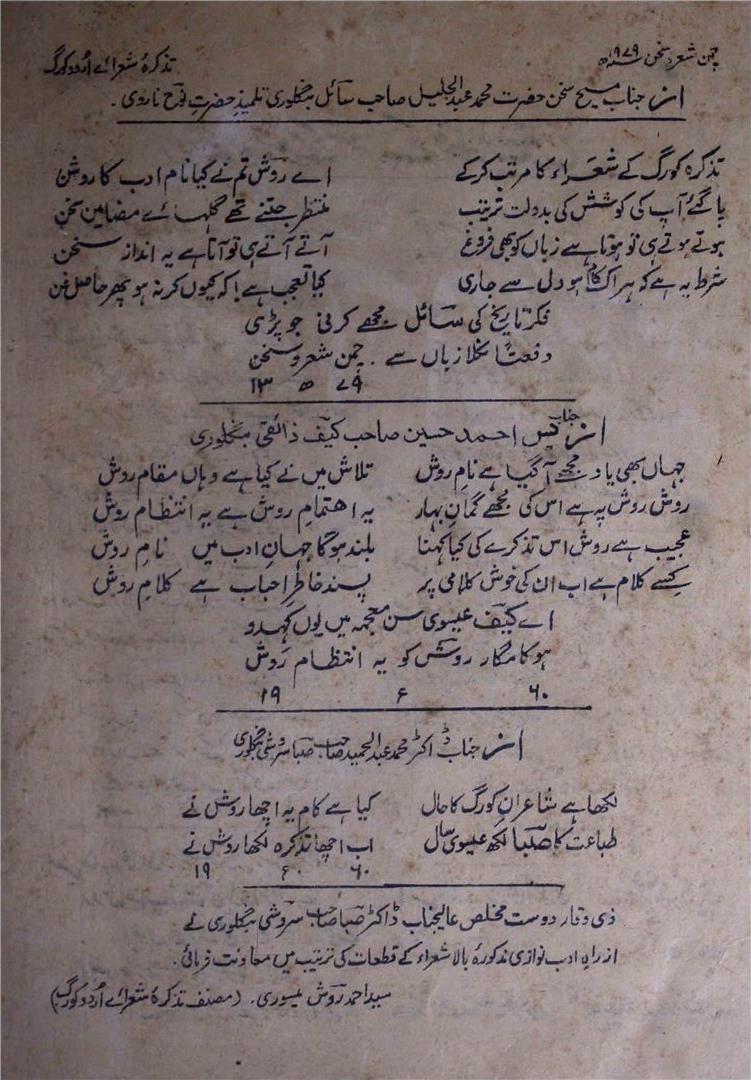 چمن شعر و سخن ۱۹۷۹ھ تذکرۂ شعرائے اُردو کورگ
از جناب مسیح سخن حضرت محمد عبد الجلیل صاحب سائل بنگلوری تلمیذ حضرتِ نوح ناروی ۔
تذکرہ کورگ کے شعراء کا مرتب کر کے اے روشؔ تم نے کیا نام ادب کا روشن
پا گئے آپ کی کوشش کی بدولت ترتیب منتظر جتنے تھے گلہائے مضامین سخن
ہوتے ہوتے ہی تو ہوتا ہے زباں کو بھی فروغ آتے آتے ہی تو آتا ہے یہ اندازِ سخن
شرط یہ ہے کہ ہر اک کام ہو دل سے جاری کیا تعجب ہے کہ کیوں کر نہ ہو پھر حاصل فن
فکر تاریخ کی سائلؔ مجھے کرنی جو پڑی
دفعتاً نکلا زباں سے ۔ چمن شعر و سخن
۱۳ ھ ۷۹
از جناب احمد حسین صاحب کیفؔ ذائقی بنگلوری
جہاں بھی یاد مجھے آگیا ہے نام روش تلاش میں نے کیا ہے وہاں مقام روش
روش روش پہ ہے اس کی مجھے گمانِ بہار یہ اهتمامِ روش ہے یہ انتظام روش
عجیب ہے روش اس تذکرے کی کیا کہنا بلند ہوگا جہانِ ادب میں نامِ روش
کسے کلام ہے اب ان کی خوش کلامی پر پسند خاطرِ احباب ہے کلامِ روش
اے کیفؔ عیسوی سن معجمہ میں یوں کہدو
ہو کامگار روشؔ کو یہ انتظام رَوش
۱۹ ء ۶۰
از جناب ڈاکٹر محمد عبد الحمید صاحب صباؔ سروشی بنگلوری
لکھا ہے شاعرانِ کورگ کا حال کیا ہے کام یہ اچھا روش نے
طباعت کا صباؔ لکھ عیسوی سال اب اچھا تذکرہ لکھا روش نے
۱۹ ء ۶۰
ذی وقار دوست مخلص عالیجناب ڈاکٹر صبا صاحب سروشی بنگلوری نے
از راہِ ادب نوازی مذکورۂ بالا شعراء کے قطعات کی ترتیب میں معاونت فرمائی ۔
سید احمد روشؔ میسوری ۔ (مصنف تذکرۂ شعرائے اُردو کورگ)